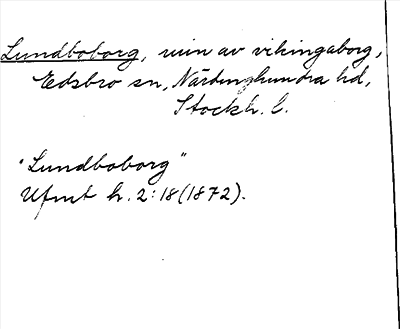 Lundboborg, ruin av vikingaborg,
Edsbro sn, Närdinghundra hd,
Stockh. l.
"Lundboborg"
Ufmt h. 2:18 (1872).